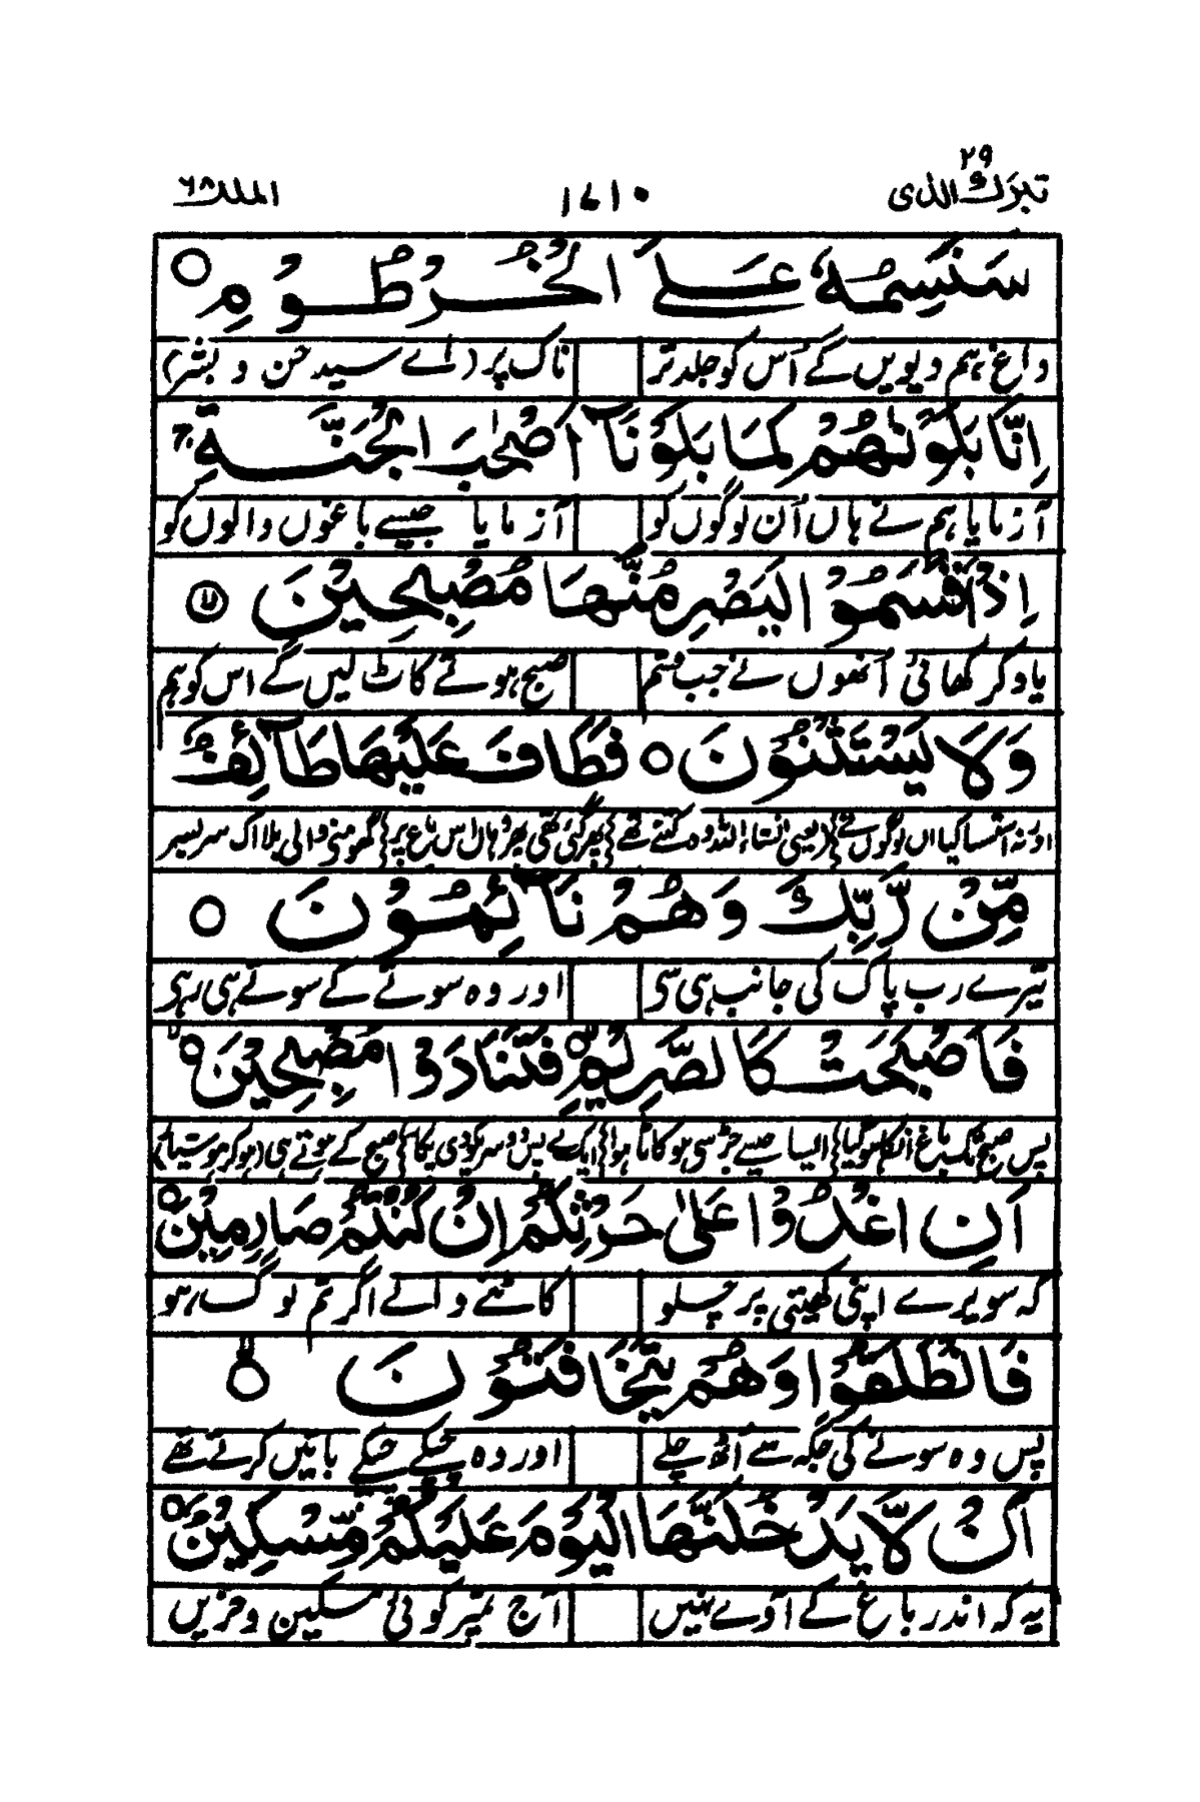 تبرك الذی ۲۹ ۱۷۱۰ الملك ۶۸
سَنَسِمُهٗ عَلَی الْخُرْطُوْمِ ○
داغ ہم دیویں گے اُس کو جلد تر ناک پر (اے سید جن و بشر)
اِنَّا بَلَوْنٰهُمْ كَمَا بَلَوْنَاۤ اَصْحٰبَ الْجَنَّةِ
آزمایا ہم نے ہاں اُن لوگوں کو آزمایا جیسے باغوں والوں کو
اِذْ اَقْسَمُوْا لَیَصْرِمُنَّهَا مُصْبِحِیْنَ
یاد کر کھائی اُنھوں نے جب قسم صبح ہوتے کاٹ لیں گے اس کو ہم
وَلَا یَسْتَثْنُوْنَ ○ فَطَافَ عَلَیْهَا طَآئِفٌ
اور نہ استثنا کیا اں لوگوں نے (یعنی انشاء اللہ وہ کہتے تھے) پھر گئی تھی پھر وہاں اس باغ پر گھومنے والی بلا اک سربسر
مِّنْ رَّبِّكَ وَهُمْ نَآئِمُوْنَ ○
تیرے رب پاک کی جانب ہی سی اور وہ سوتے کے سوتے ہی رہی
فَاَصْبَحَتْ كَالصَّرِیْمِ ○ فَتَنَادَوْا مُصْبِحِیْنَ ○
پس صبح تک باغ انکا ہو گیا ایسا جیسے جڑ سی ہو کاٹا ہوا ایک نے پس دوسر کو دی پکا صبح کے ہوتے ہی (ہوکر ہوشیار)
اَنِ اغْدُوْا عَلٰی حَرْثِكُمْ اِنْ كُنْتُمْ صَارِمِیْنَ ○
کہ سویرے اپنی کھیتی پر چلو کاٹنے والے اگر تم لوگ ہو
فَانْطَلَقُوْا وَهُمْ یَتَخَافَتُوْنَ ○
پس وہ سوتے کی جگہ سے اُٹھ چلے اور وہ چپکے چپکے باتیں کرتے تھے
اَنْ لَّا یَدْخُلَنَّهَا الْیَوْمَ عَلَیْكُمْ مِّسْكِیْنٌ ○
یہ کہ اندر باغ کے آوے نہیں آج تمپر کوئی مسکین و حزیں